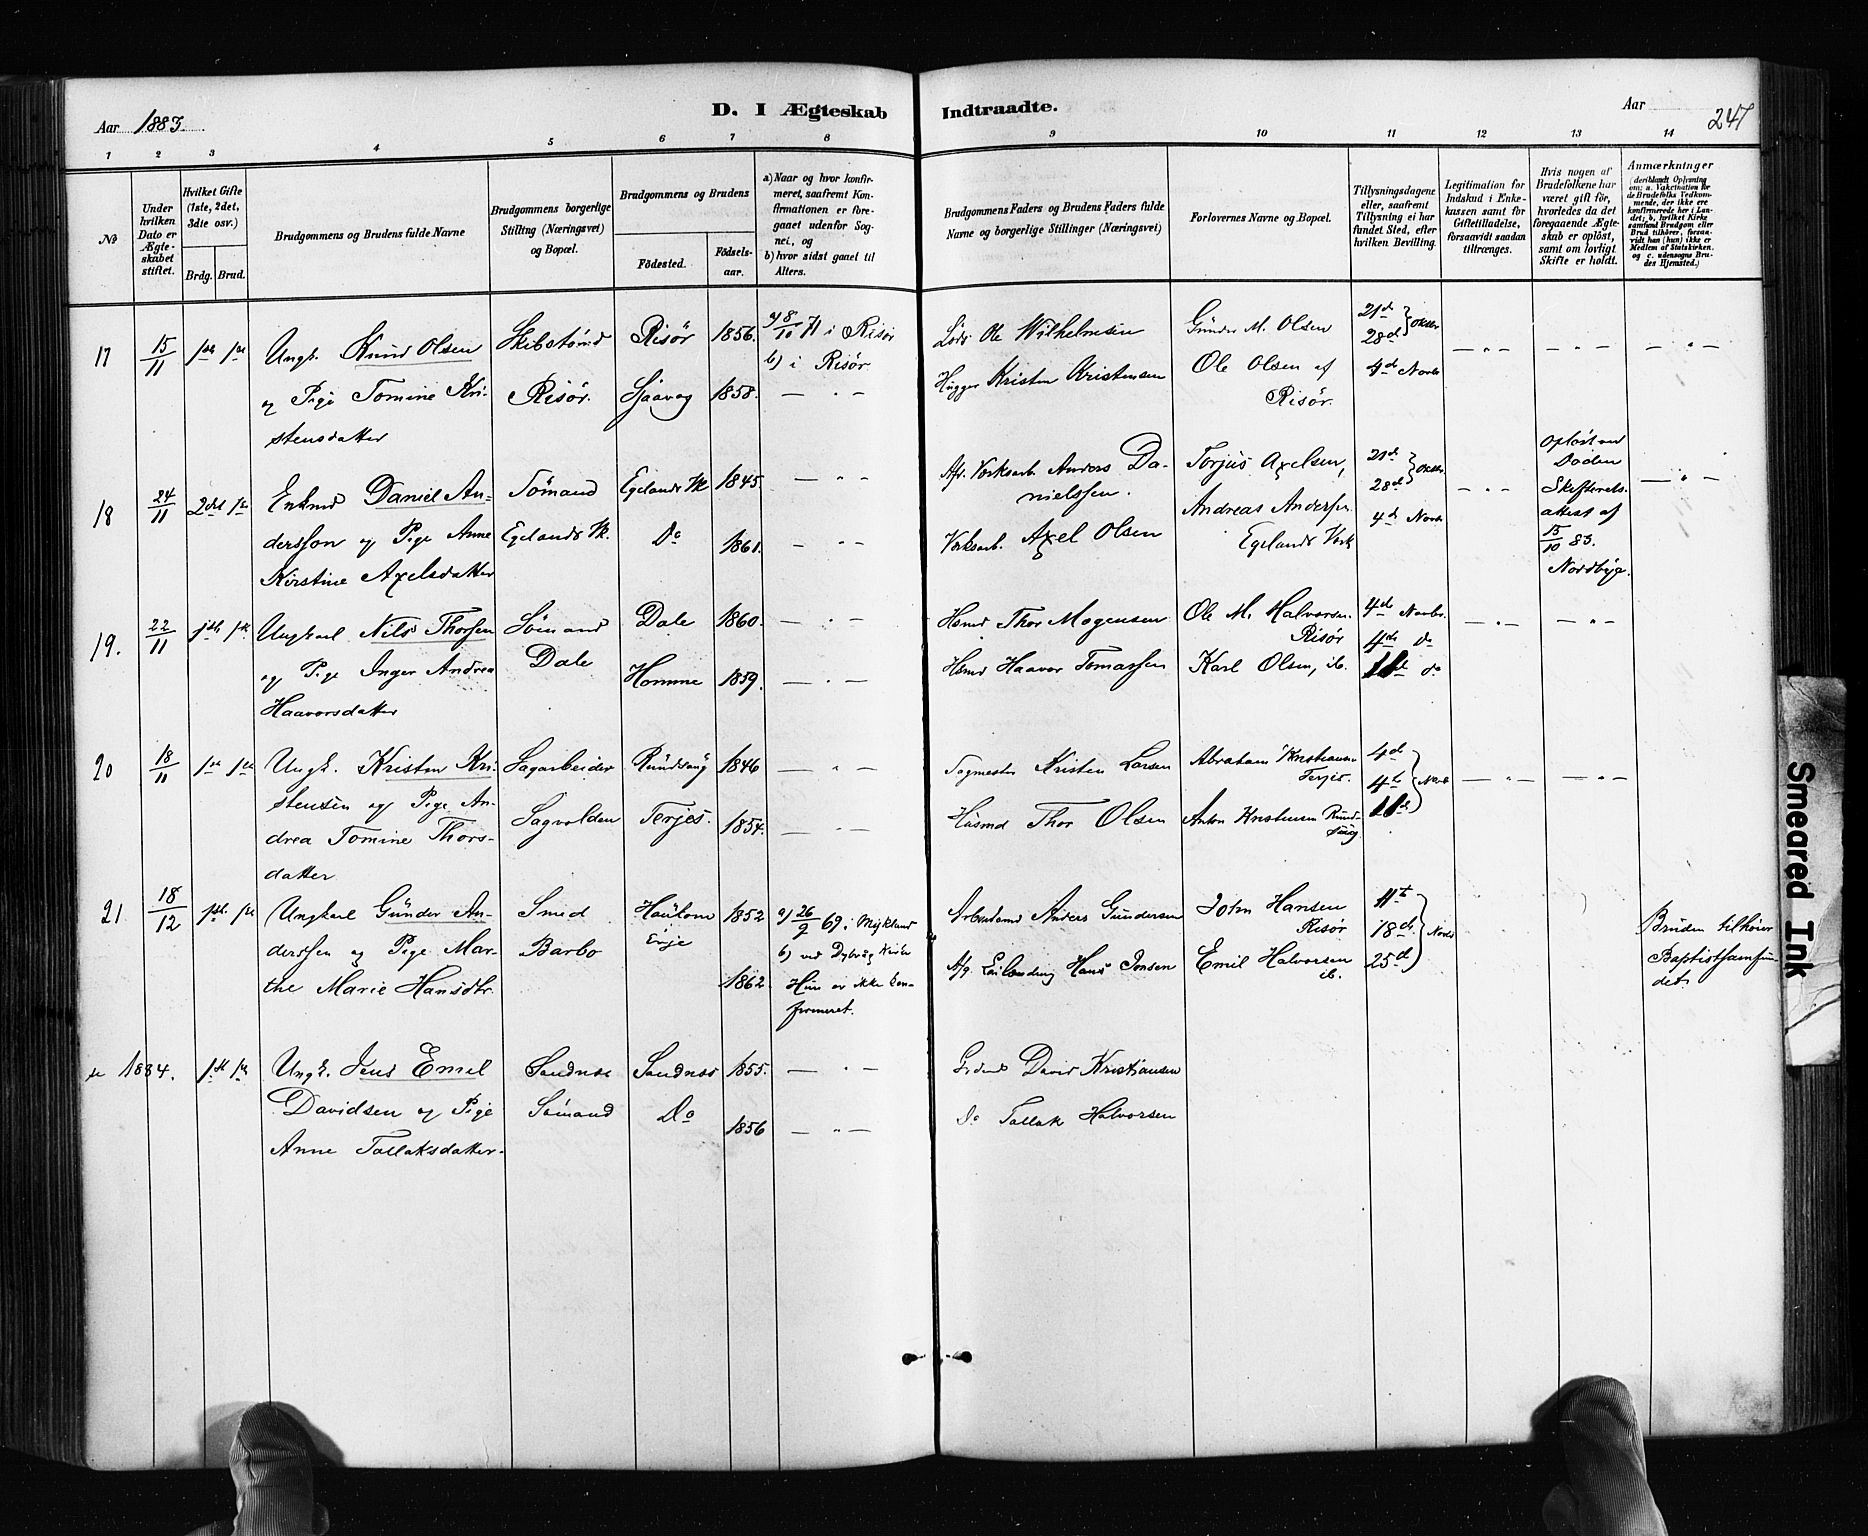 D. I Ægteskab Indtraadte.
Aar 1883.
Aar
247
1 2 3 4 5 6 7 8 9 10 11 12 13 14
No
Under hvilken Dato er Ægteskabet stiftet.
Hvilket Gifte (1ste, 2det, 3die osv.)
Brdg. Brud.
Brudgommens og Brudens fulde Navne
Brudgommens borgerlige Stilling (Næringsvei) og Bopæl.
Brudgommens og Brudens
Födested.
Födselsaar.
a) Naar og hvor konfirmeret, saafremt Konfirmationen er foregaaet udenfor Sognet, og
b) hvor sidst gaaet til Alters.
Brudgommens Faders og Brudens Faders fulde Navne og borgerlige Stillinger (Næringsvei)
Forlovernes Navne og Bopæl.
Tillysningsdagene eller, saafremt Tillysning ei har fundet Sted, efter hvilken Bevilling.
Legitimation for Indskud i Enkekassen samt for Giftetilladelse, forsaavidt saadan tiltrænges.
Hvis nogen af Brudefolkene har været gift för, hvorledes da det foregaaende Ægteskab er oplöst, samt om lovligt Skifte er holdt.
Anmærkninger (deriblandt Oplysning om: a. Vakcination for de Brudefolks Vedkommende, der ikke ere konfirmerede her i Landet; b, hvilket Kirkesamfund Brudgom eller Brud tilhører, forsaavidt han (hun) ikke er Medlem af Statskirken. og c. udensogns Brudes Hjemsted.)
17 15/11 1ste 1ste
Ungk. Knud Olsen
og Pige Tomine Kri-
stensdatter
Skibstømd
Risör.
Risör 1856.
Sjaavaag 1858.
a) 8/10 71 i Risör
b) i Risör
Lods Ole Wilhelmsen
Hugger Kristen Kristensen
Gunder M. Olsen
Ole Olsen af
Risör.
21de
28de Oktbr
4de Novbr
18 24/11 2det 1ste
Enkmd Daniel An-
derssøn og Pige Anne
Kirstine Axelsdatter
Sömand
Egelands Vk.
Egelands Vk 1845.
Do 1861.
Afs. Verksarb. Anders Da-
nielssen.
Verksarb. Axel Olsen
Torjus Axelsen,
Andreas Anderssen
Egelands Verk
21de
28de Oktbr
4de Novbr
opløst ved
Døden
Skifterets-
attest af
15/10 83.
Nordbye.
19. 22/11 1ste 1ste
Ungkarl Nils Thorsen
og Pige Inger Andrea
Haavorsdatter
Sömand
Dale
Dale 1860.
Homme 1859.
Husmd Thor Mogensen
Husmd Haavor Tomassen
Ole M. Halvorsen
Risör
Karl Olsen, ib.
4de Novbr.
4de do
11te do
20 18/11 1ste 1ste
Ungk. Kristen Kri-
stensen og Pige An-
drea Tomine Thors-
datter
Sagarbeider
Sagvolden
Rundsaug 1846
Terjes. 1854.
Sagmester Kristen Larsen
Husmd Thor Olsen
Abraham Kristiansen
Terjes.
Anton Kristensen Rund-
saug
4de
4de Novbr
11te
21 18/12 1ste 1ste
Ungkarl Gunder An-
derssen og Pige Mar-
the Marie Hansdtr.
Smed
Barbo
Hautom
Evje
1852
1862
a) 26/9 69. i Mykland
b) ved Dybvåg Kirke
Hun er ikke kon-
firmeret.
Arbeidsmd Anders Gundersen
Hans Jensen
John Hansen
Risör
Emil Halvorsen
ib.
11te
18de Novbr
25de
Bruden tilhører
Baptistsamfun-
det.
1884. 1ste 1ste
Ungk. Jens Emil
Davidsen og Pige
Anne Tallaksdatter.
Sandnæs
Sömand
Sandnæs 1855.
Do 1856
David Kristiansen
Do Tallak Halvorsen
Smeared Ink